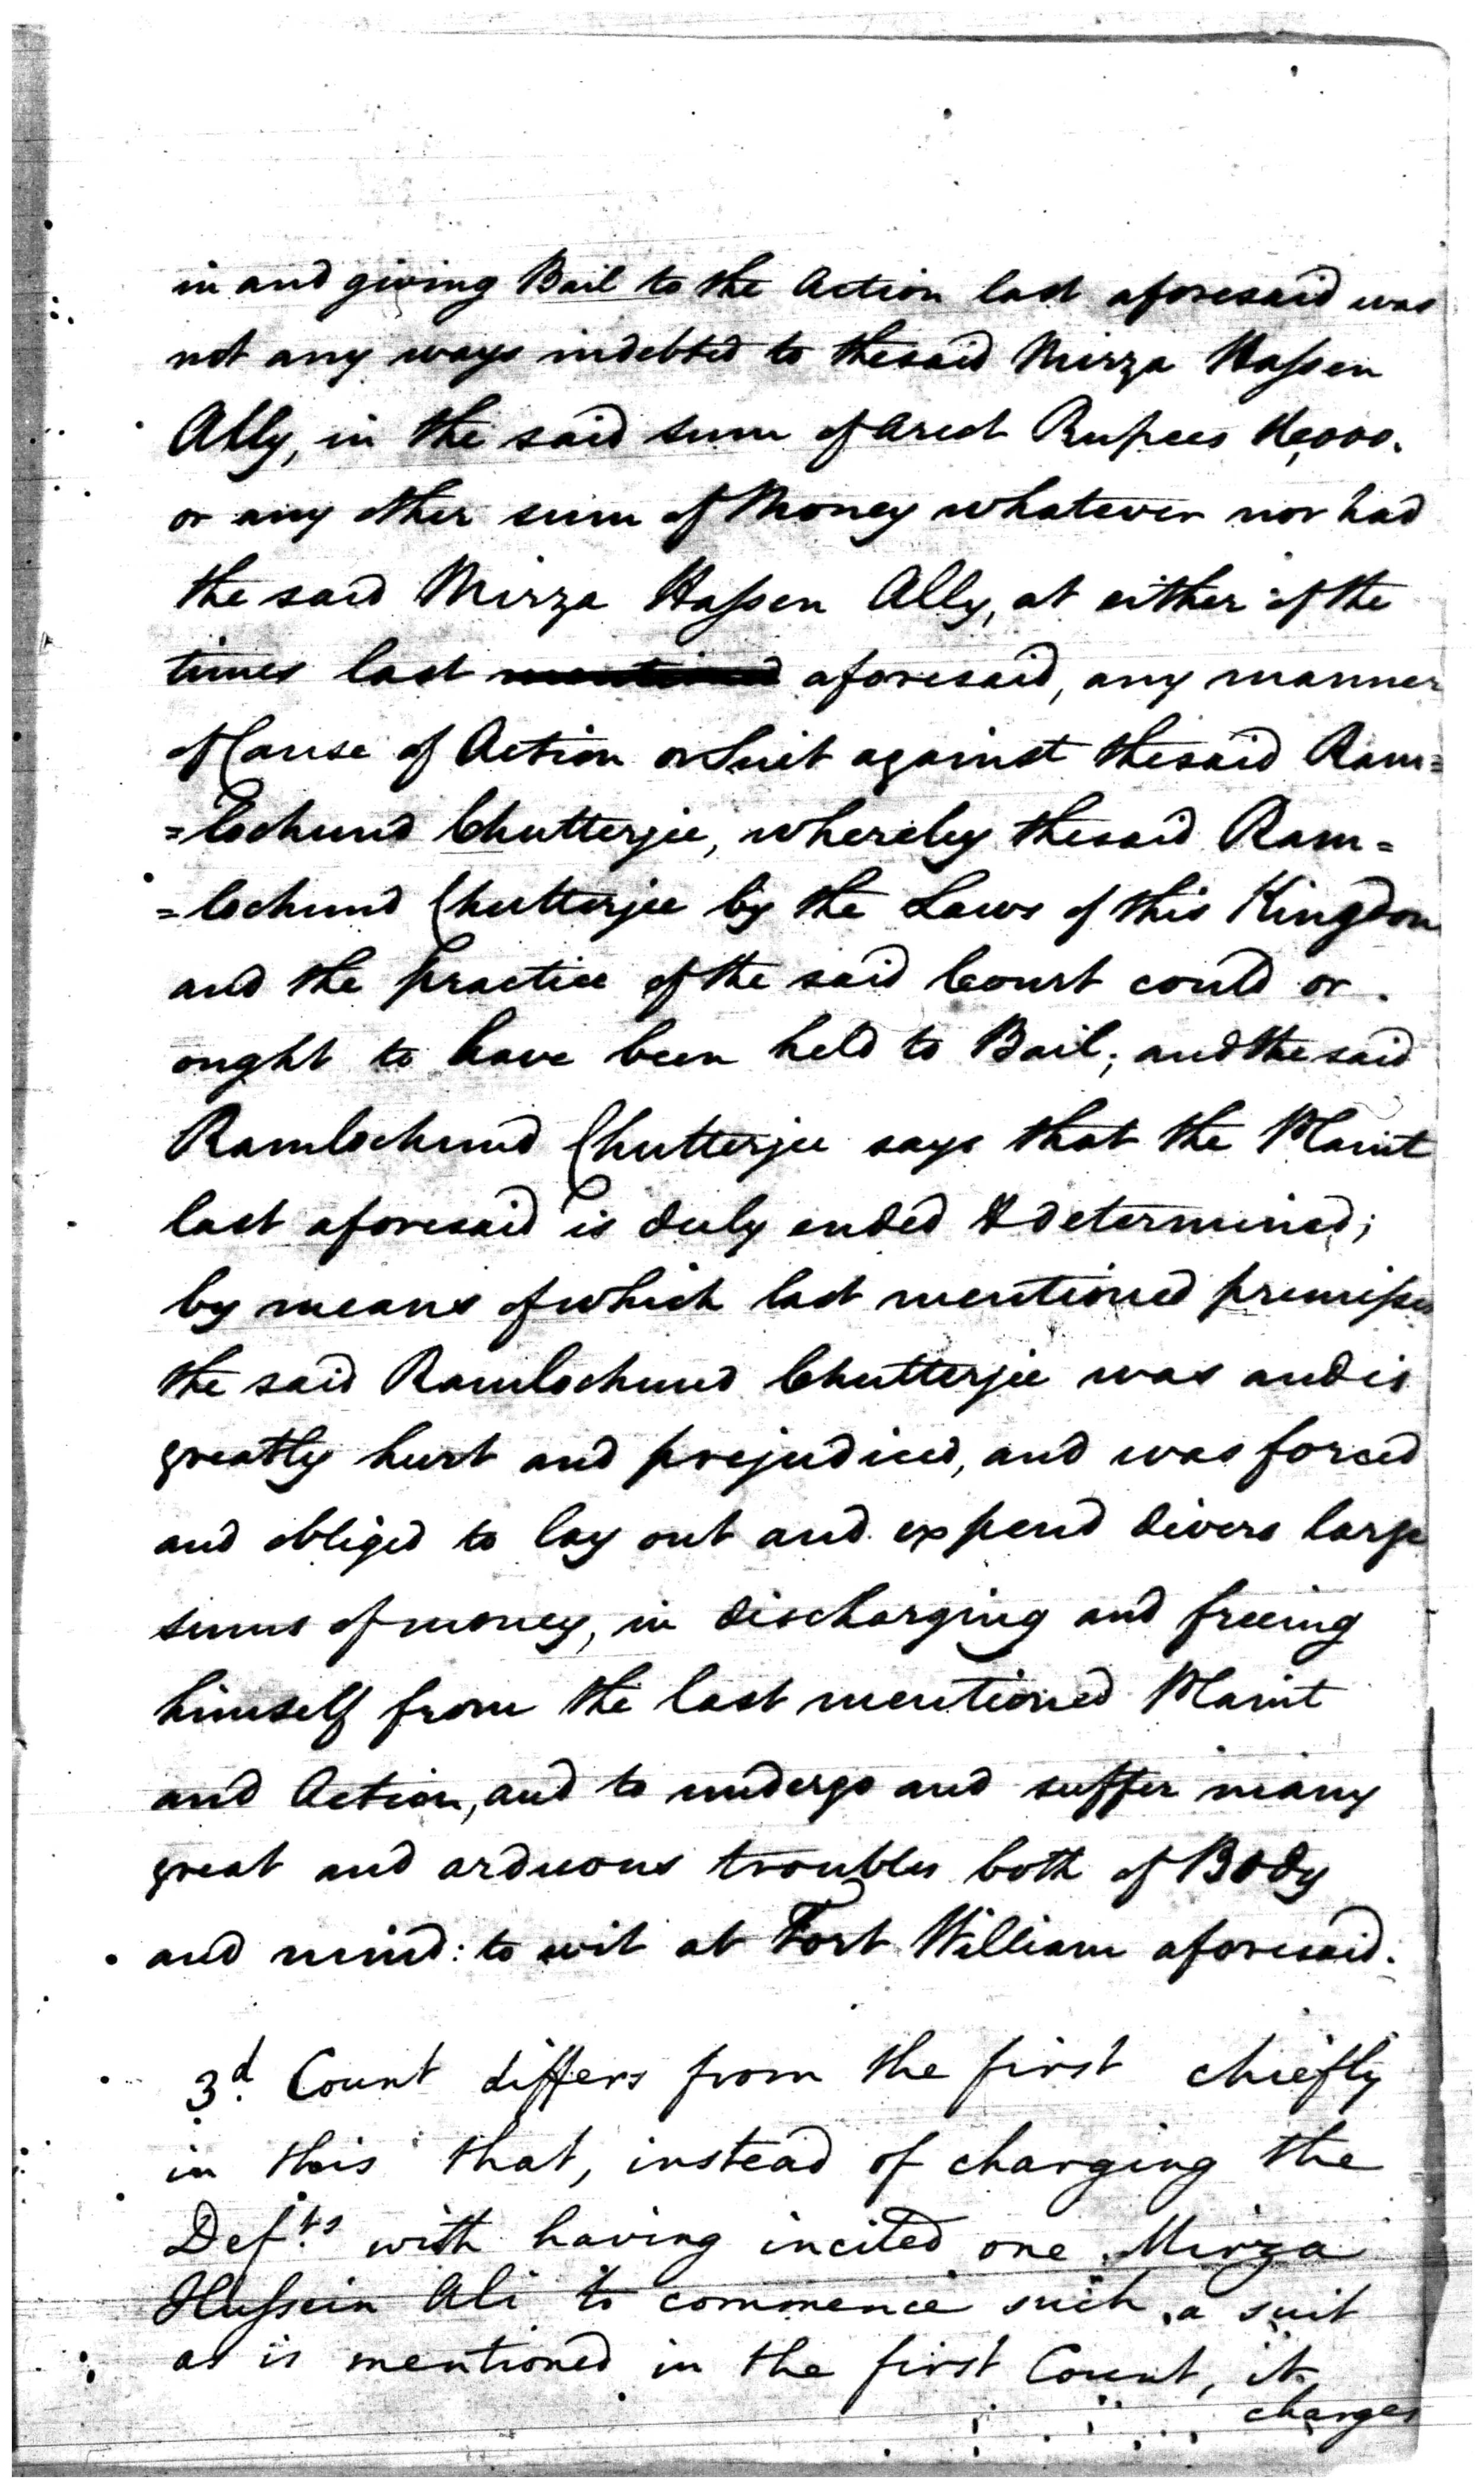 in and giving Bail to the Action last aforesaid was
not any ways indebted to the said Mirza Haſsen
Ally, in the said sum of Arcot Rupees
or any other sum of Money whatever nor had
the said Mirza Haſsen Ally, at either of the
times last mentioned aforesaid, any manner
of Cause of Action or Suit against the said Ram=
=lochund Chutterjee, whereby the said Ram=
=lochund Chutterjee by the Laws of this Kingdom
and the Practice of the said Court could or
ought to have been held to Bail; and the said
Ramlochund Chutterjee says that the Plaint
last aforesaid is duly ended & determined;
by means of which last mentioned premiſses
the said Ramlochund Chutterjee was and is
greatly hurt and prejudiced, and was forced
and obliged to lay out and expend divers large
sums of money, in discharging and freeing
himself from the last mentioned Plaint
and Action, and to undergo and suffer many
great and arduous troubles both of Body
and mind: to wit at Fort William aforesaid.
3d. Count differs from the first chiefly
in this that, instead of charging the
Def.ts with having incited one Mirza
Huſsein Ali to commence such a suit
as is mentioned in the first Count, it
charges